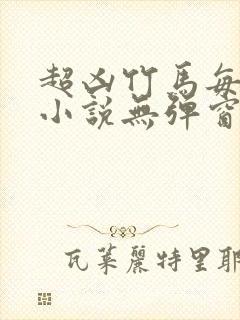 超凶竹馬每
小説無彈窗
瓦萊麗特里耶